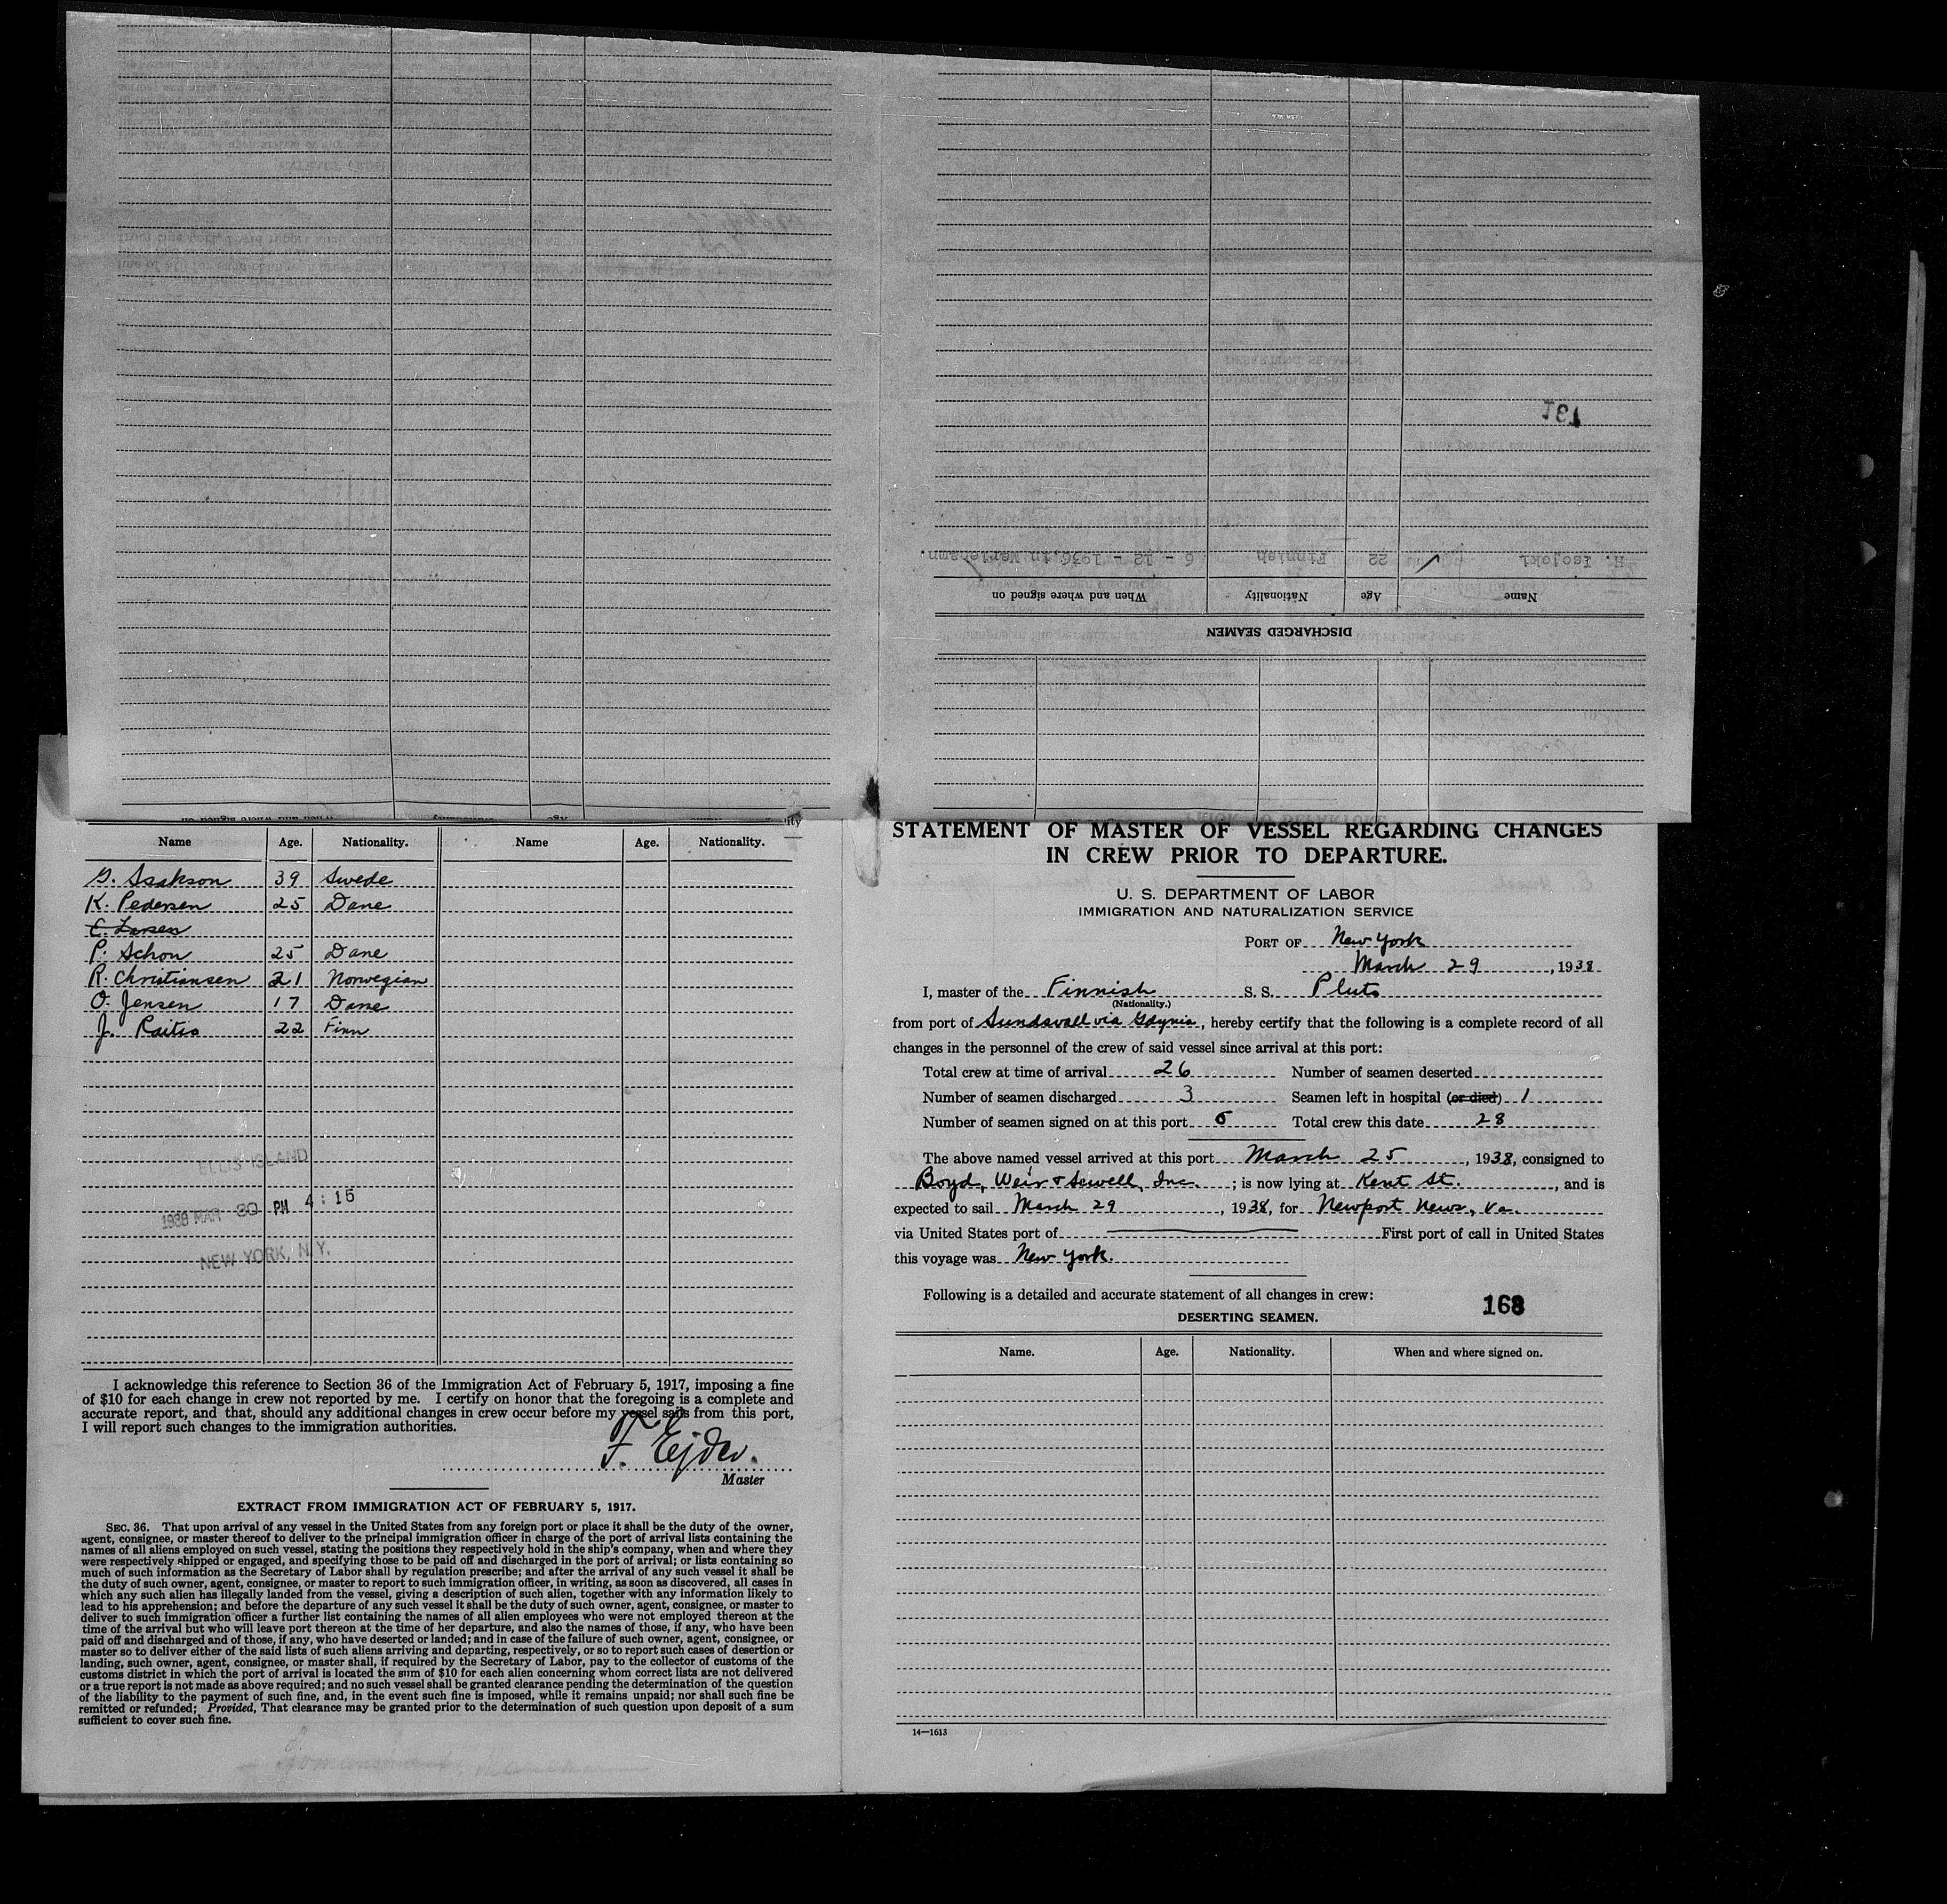 DISCHARGED SEAMEN
Name Age Nationality When and where signed on
H. Isojoki 22 Finnish 6 - 12 - 1936, in Mariehamn.
131
Name Age. Nationality. Name Age. Nationality.
G. Isakson 39 Swede
K. Pedersen 25 Dane
C. Larsen
P. Schou 25 Dane
R. Christiansen 21 Norwegian
O. Jensen 17 Dane
J. Raitio 22 Finn
ELLIS ISLAND
1938 MAR 30 PM 4:15
NEW YORK, N.Y.
I acknowledge this reference to Section 36 of the Immigration Act of February 5, 1917, imposing a fine
of $10 for each change in crew not reported by me. I certify on honor that the foregoing is a complete and
accurate report, and that, should any additional changes in crew occur before my vessel sails from this port,
I will report such changes to the immigration authorities.
F. Ejder.
Master
EXTRACT FROM IMMIGRATION ACT OF FEBRUARY 5, 1917.
SEC. 36. That upon arrival of any vessel in the United States from any foreign port or place it shall be the duty of the owner,
agent, consignee, or master thereof to deliver to the principal immigration officer in charge of the port of arrival lists containing the
names of all aliens employed on such vessel, stating the positions they respectively hold in the ship's company, when and where they
were respectively shipped or engaged, and specifying those to be paid off and discharged in the port of arrival; or lists containing so
much of such information as the Secretary of Labor shall by regulation prescribe; and after the arrival of any such vessel it shall be
the duty of such owner, agent, consignee, or master to report to such immigration officer, in writing, as soon as discovered, all cases in
which any such alien has illegally landed from the vessel, giving a description of such alien, together with any information likely to
lead to his apprehension; and before the departure of any such vessel it shall be the duty of such owner, agent, consignee, or master to
deliver to such immigration officer a further list containing the names of all alien employees who were not employed thereon at the
time of the arrival but who will leave port thereon at the time of her departure, and also the names of those, if any, who have been
paid off and discharged and of those, if any, who have deserted or landed; and in case of the failure of such owner, agent, consignee, or
master so to deliver either of the said lists of such aliens arriving and departing, respectively, or so to report such cases of desertion or
landing, such owner, agent, consignee, or master shall, if required by the Secretary of Labor, pay to the collector of customs of the
customs district in which the port of arrival is located the sum of $10 for each alien concerning whom correct lists are not delivered
or a true report is not made as above required; and no such vessel shall be granted clearance pending the determination of the question
of the liability to the payment of such fine, and, in the event such fine is imposed, while it remains unpaid; nor shall such fine be
remitted or refunded; Provided, That clearance may be granted prior to the determination of such question upon deposit of a sum
sufficient to cover such fine.
STATEMENT OF MASTER OF VESSEL REGARDING CHANGES
IN CREW PRIOR TO DEPARTURE.
U. S. DEPARTMENT OF LABOR
IMMIGRATION AND NATURALIZATION SERVICE
PORT OF New York
March 29, 1938
I, master of the Finnish S. S. Pluto
(Nationality.)
from port of Sundsvall via Gdynia, hereby certify that the following is a complete record of all
changes in the personnel of the crew of said vessel since arrival at this port:
Total crew at time of arrival 26 Number of seamen deserted
Number of seamen discharged 3 Seamen left in hospital (or died) 1
Number of seamen signed on at this port 6 Total crew this date 28
The above named vessel arrived at this port March 25, 1938, consigned to
Boyd, Weir & Sewell, Inc. ; is now lying at Kent St., and is
expected to sail March 29, 1938, for Newport News, Va.
via United States port of First port of call in United States
this voyage was New York.
Following is a detailed and accurate statement of all changes in crew:
168
DESERTING SEAMEN.
Name. Age. Nationality. When and where signed on.
14—1613